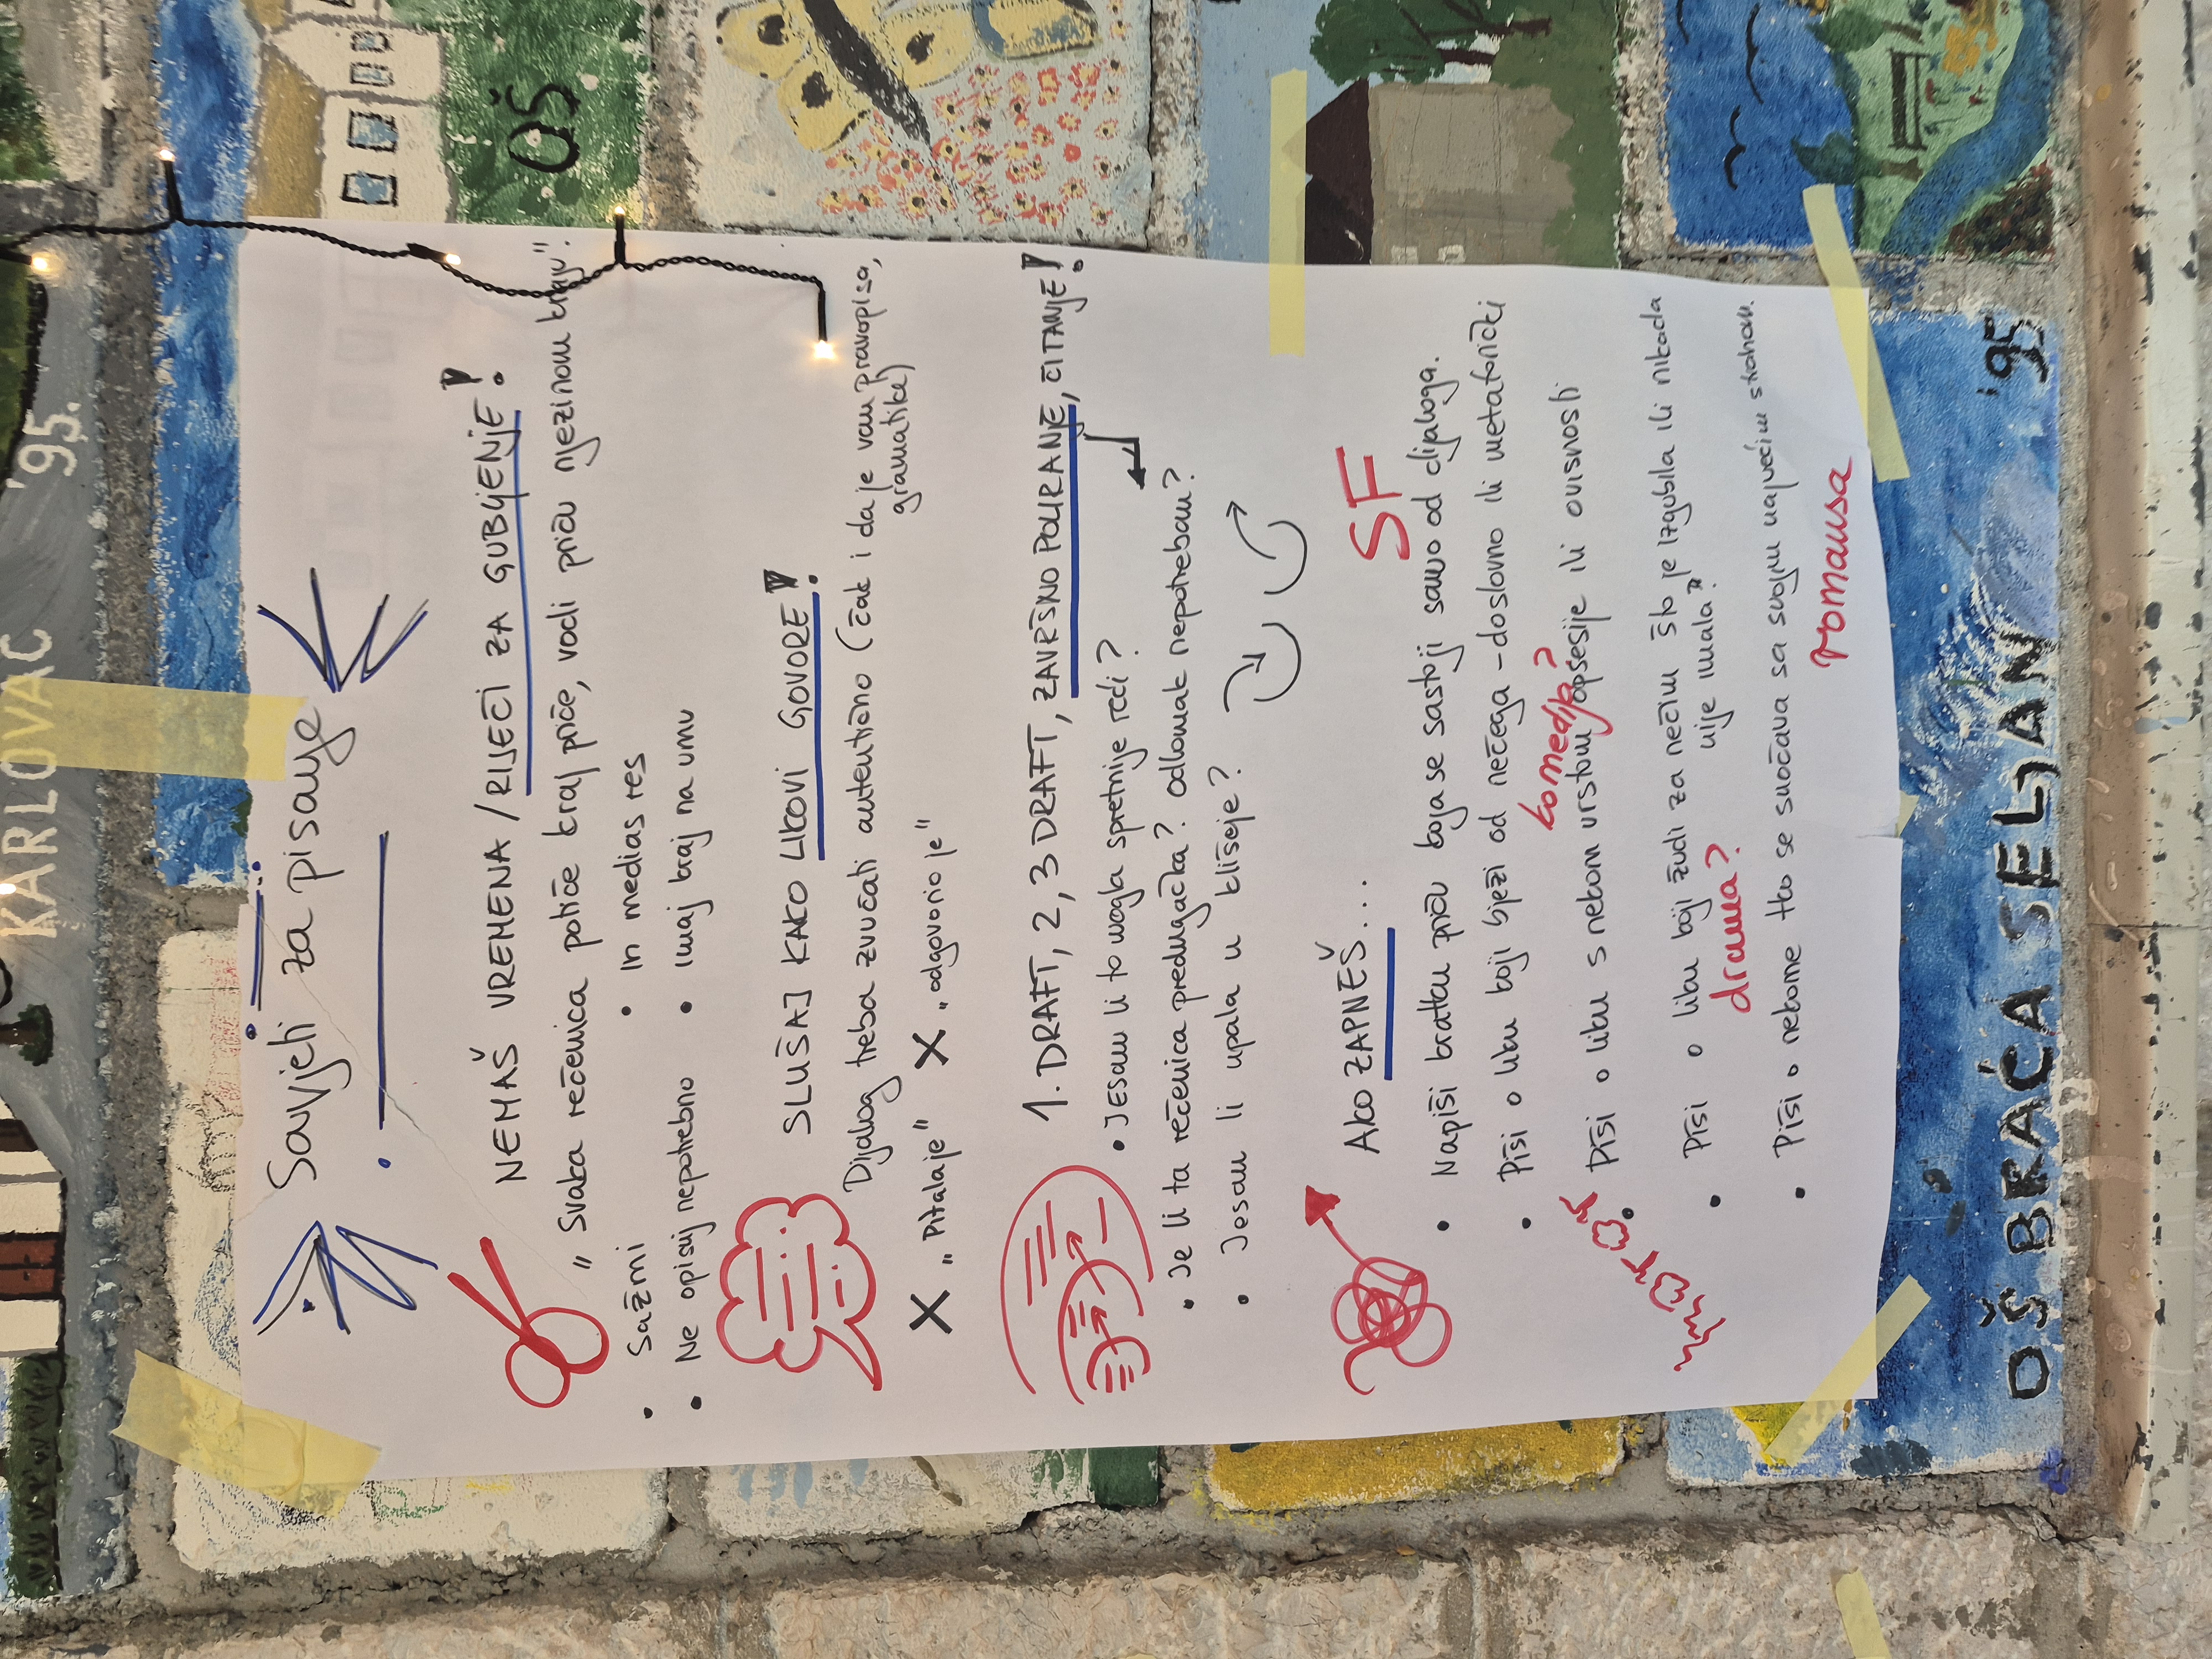 KARLOVAC '95.
OŠ
Savjeti za pisanje
NEMAŠ VREMENA / RIJEČI ZA GUBLJENJE!
„Svaka rečenica potiče kraj priče, vodi priču njezinom kraju".
• Sažmi
• In medias res
• Ne opisuj nepotrebno
• Imaj kraj na umu
SLUŠAJ KAKO LIKOVI GOVORE!
Dijalog treba zvučati autentično (čak i da je van pravopisa,
gramatike)
X „Pitala je" X „odgovorio je"
1. DRAFT, 2, 3 DRAFT, ZAVRŠNO POLIRANJE, ČITANJE!
• Jesam li to mogla spretnije reći?
• Je li ta rečenica predugačka? odlomak nepotreban?
• Jesam li upala u klišeje?
AKO ZAPNEŠ...
SF
• Napiši kratku priču koja se sastoji samo od dijaloga.
• Piši o liku koji bježi od nečega - doslovno ili metaforički
komedija?
• Piši o liku s nekom vrstom opsesije ili ovisnosti
• Piši o liku koji žudi za nečim što je izgubila ili nikada
nije imala?
drama?
• Piši o nekome tko se suočava sa svojim najvećim strahom.
romansa
OŠ BRAĆA SELJAN '95